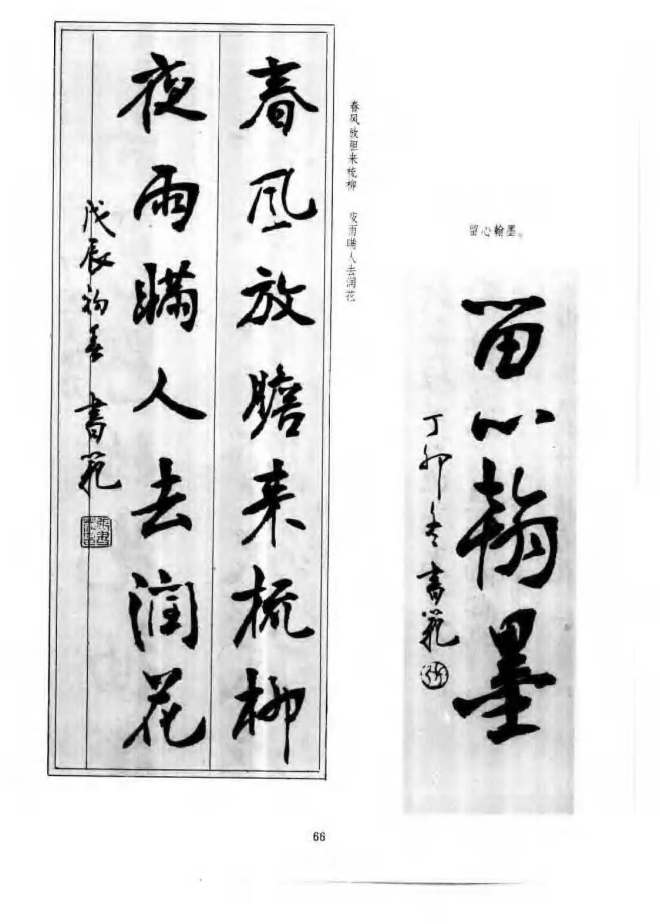 春风放膽来梳柳
夜雨瞞人去润花
戊辰初春 書範
春风放胆来梳柳 夜雨瞒人去润花
留心翰墨。
留心翰墨
丁卯冬書範
66